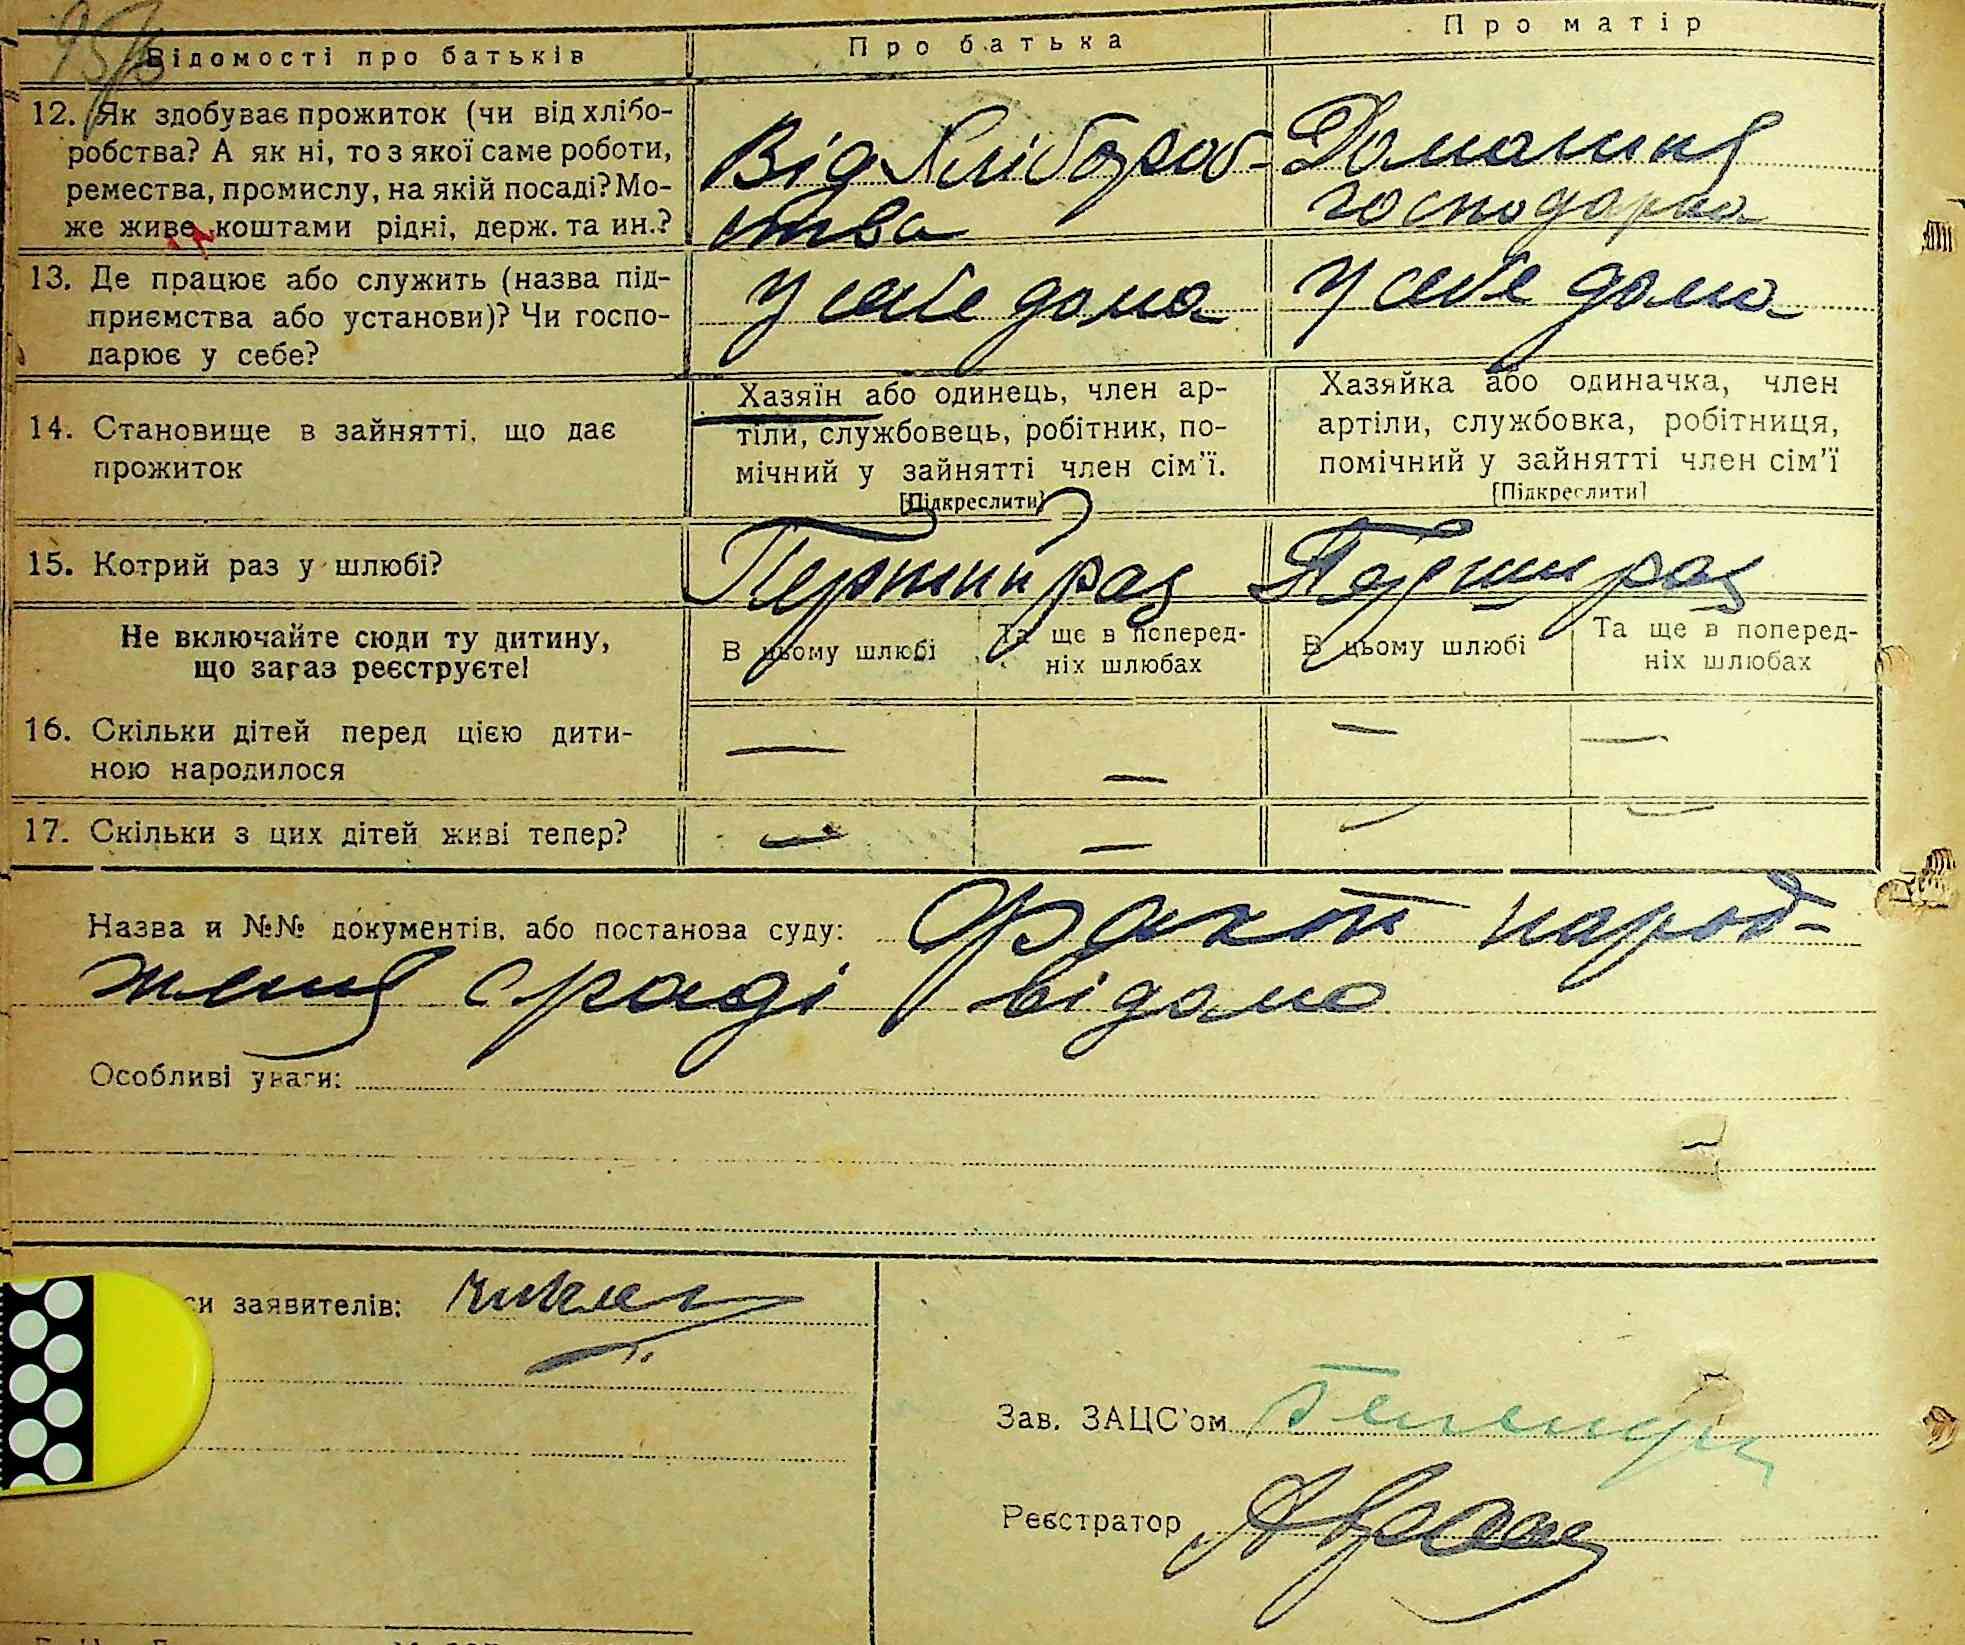 Відомості про батьків
Про батька
Про матір
12. Як здобуває прожиток (чи від хлібо-
робства? А як ні, то з якої саме роботи,
ремества, промислу, на якій посаді? Мо-
же живе коштами рідні, держ. та ин.?
Від хлібороб-
ства
Домашня
господарка
13. Де працює або служить (назва під-
приємства або установи)? Чи госпо-
дарює у себе?
У себе дома
У себе дома
14. Становище в зайнятті, що дає
прожиток
Хазяїн або одинець, член ар-
тіли, службовець, робітник, по-
мічний у зайнятті член сім'ї.
[Підкреслити]
Хазяйка або одиначка, член
артіли, службовка, робітниця,
помічний у зайнятті член сім'ї
[Підкреслити]
15. Котрий раз у шлюбі?
Перший раз
Перший раз
Не включайте сюди ту дитину,
що зараз реєструєте!
В цьому шлюбі
Та ще в поперед-
ніх шлюбах
В цьому шлюбі
Та ще в поперед-
ніх шлюбах
16. Скільки дітей перед цією дити-
ною народилося
— — — —
17. Скільки з цих дітей живі тепер?
— — — —
Назва и №№ документів, або постанова суду: Факт народ-
ження с раді відомо
Особливі уваги:
си заявителів:
Зав. ЗАЦС'ом
Реєстратор